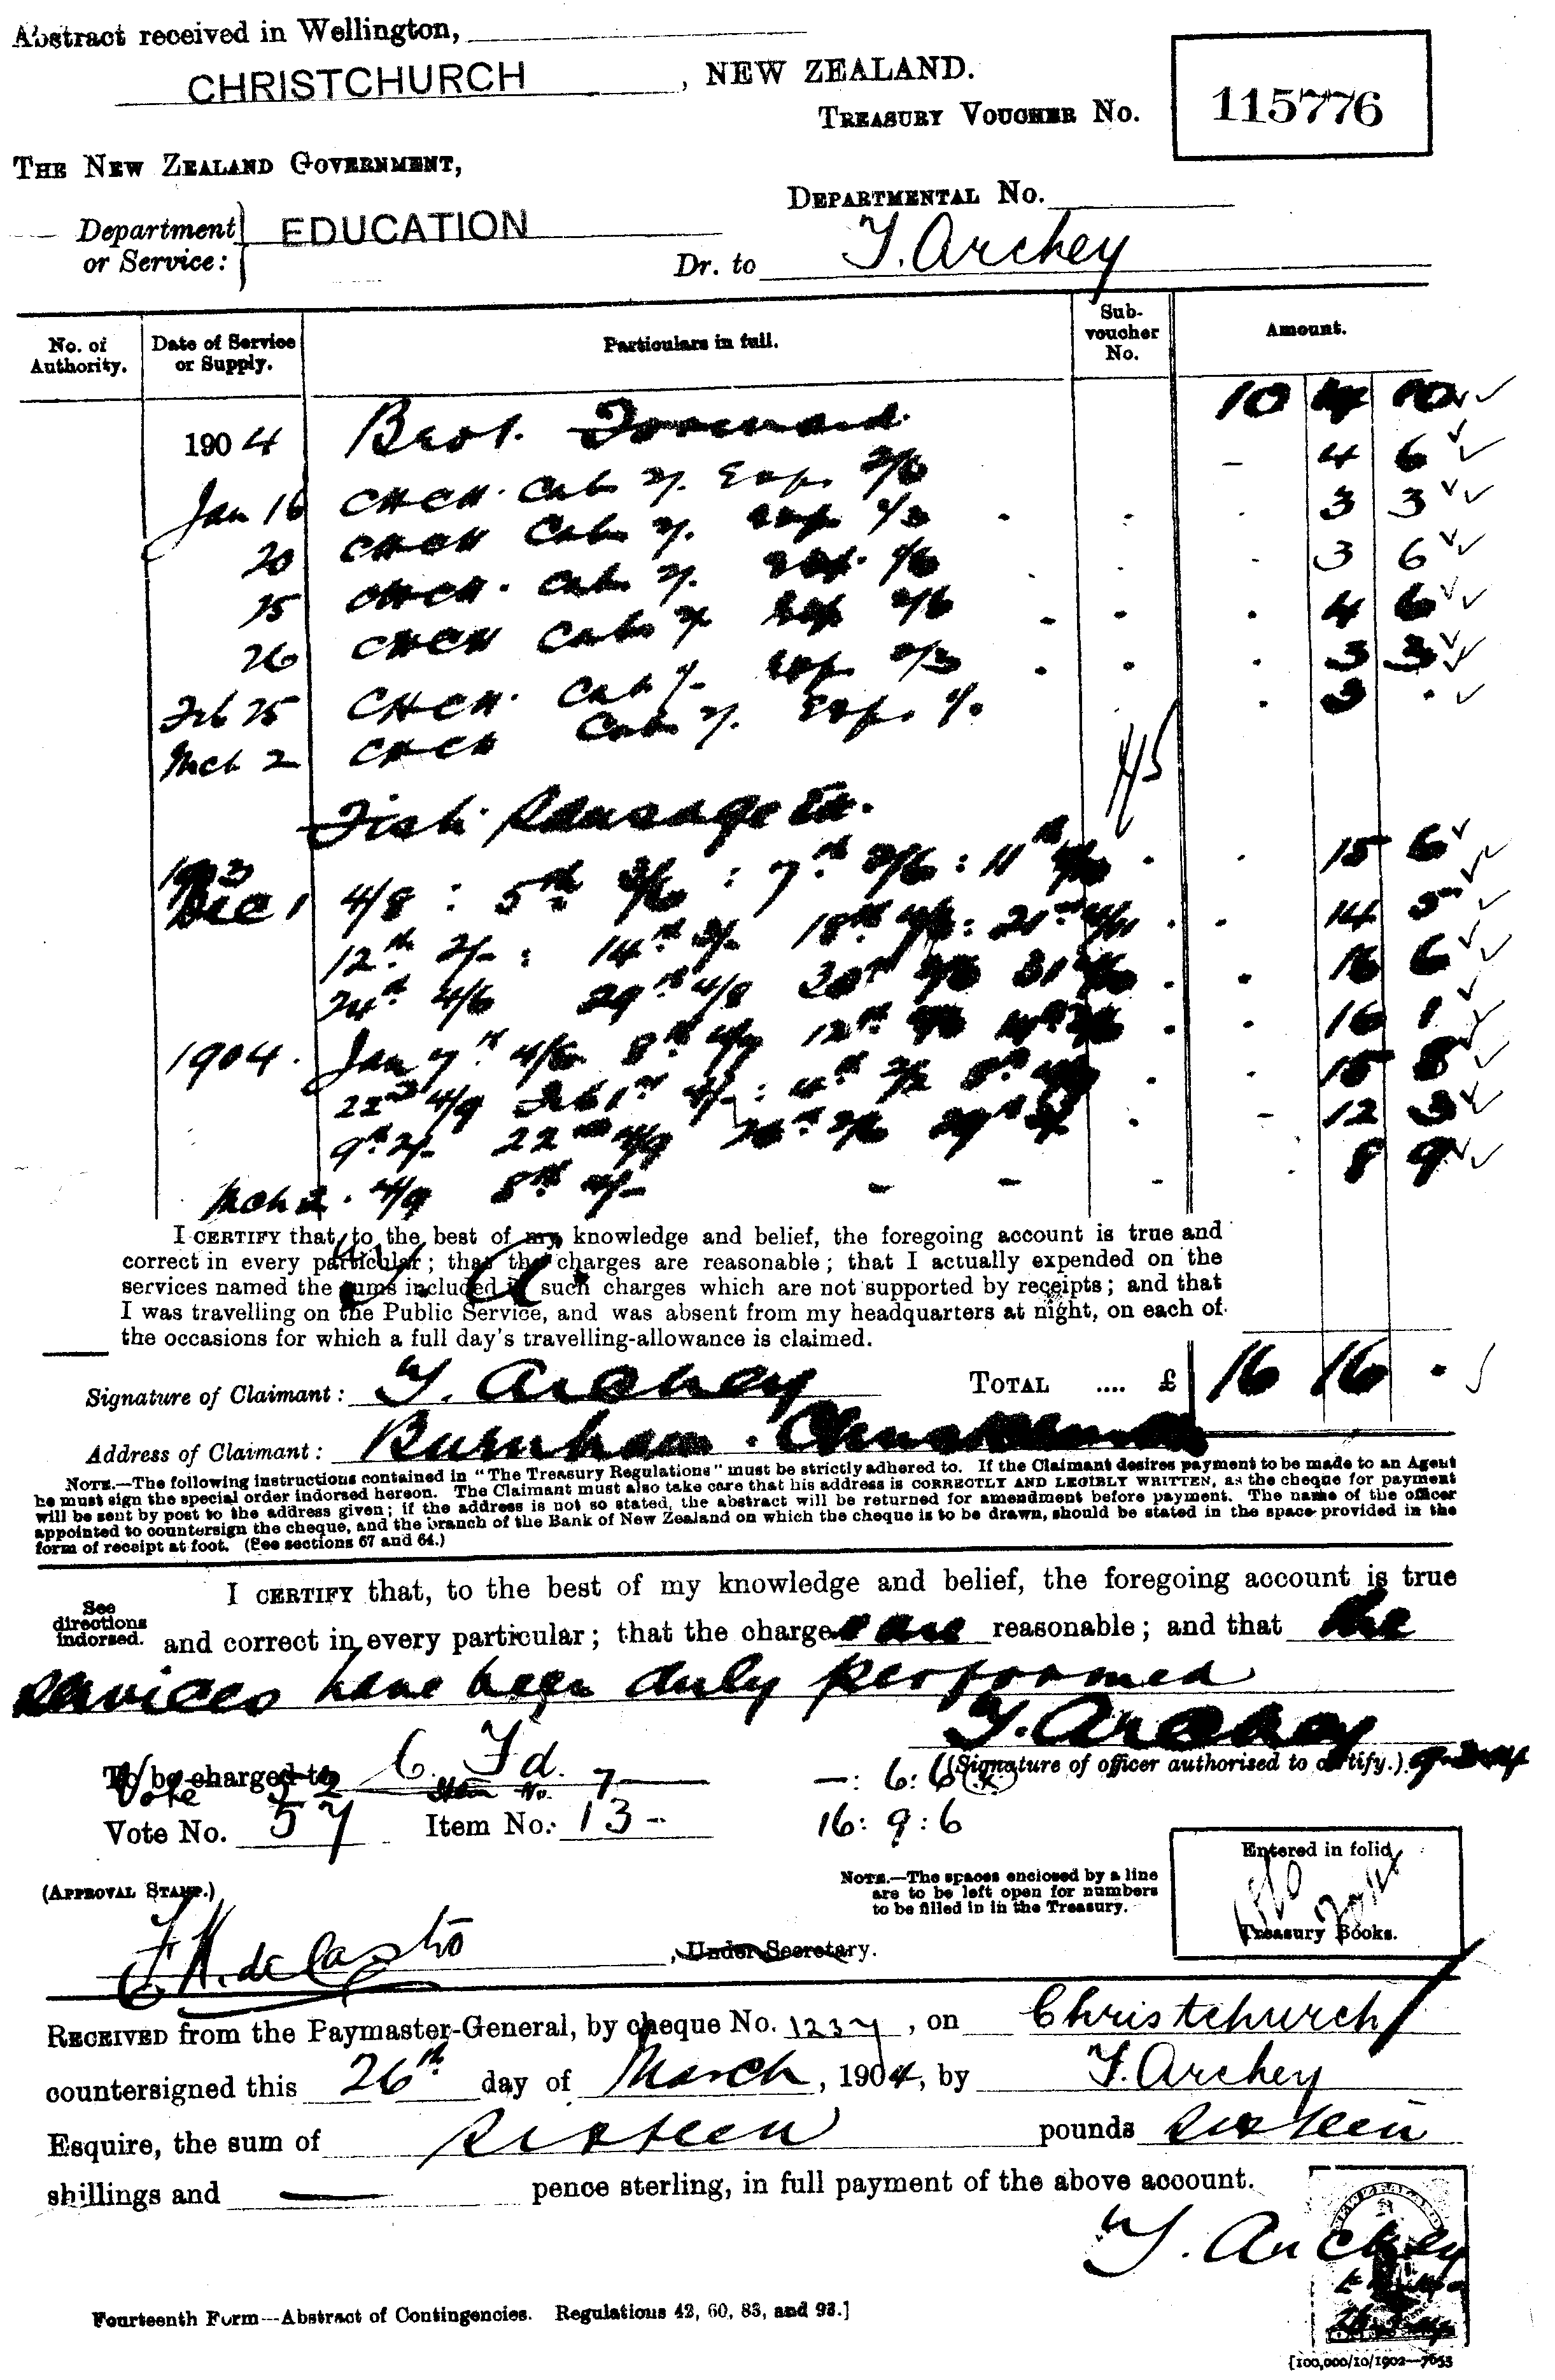 Abstract received in Wellington,
CHRISTCHURCH, NEW ZEALAND.
TREASURY VOUCHER No. 115776
THE NEW ZEALAND GOVERNMENT,
DEPARTMENTAL No.
Department or Service: EDUCATION
Dr. to T. Archey
No. of Authority. Date of Service or Supply. Particulars in full. Sub-voucher No. Amount.
1904 Brot. Forward 10 4 10
Jan 16 CHCH. Cab 2/. Exp. 2/6 - 4 6
20 CHCH Cab 2/. Exp. 1/3 3 3
25 CHCH. Cab 2/. Exp. 1/6 3 6
26 CHCH Cab 2/ Exp 2/6 4 6
Feb 25 CHCH. Cab 1/- Exp. 2/3 3 3
Mch 2 CHCH Cab 2/. Exp. 1/. 3 .
Fish Sausage Etc.
1903
Dec 1 4/8 : 5th 3/6 : 7th : 11th 15 6
12th 2/- : 14th 18th : 21st 14 5
24th 4/6 29th 4/8 30th 31 16 6
1904. Jan 7th 4/6 8th 12th 14th 16 1
22nd 4/9 Feb 1st : 4th 3/2 8th 15 8
9th 2/- 22nd 4/9 2/6 29th - 12 3
Mch 2. 4/9 8th 4/- - - - 8 9
I CERTIFY that, to the best of my knowledge and belief, the foregoing account is true and
correct in every particular; that the charges are reasonable; that I actually expended on the
services named the sums included in such charges which are not supported by receipts; and that
I was travelling on the Public Service, and was absent from my headquarters at night, on each of
the occasions for which a full day's travelling-allowance is claimed.
Signature of Claimant: T. Archey TOTAL .... £ 16 16 .
Address of Claimant: Burnham. Christchurch
NOTE.—The following instructions contained in "The Treasury Regulations" must be strictly adhered to. If the Claimant desires payment to be made to an Agent
he must sign the special order indorsed hereon. The Claimant must also take care that his address is CORRECTLY AND LEGIBLY WRITTEN, as the cheque for payment
will be sent by post to the address given; if the address is not so stated, the abstract will be returned for amendment before payment. The name of the officer
appointed to countersign the cheque, and the branch of the Bank of New Zealand on which the cheque is to be drawn, should be stated in the space provided in the
form of receipt at foot. (See sections 67 and 64.)
I CERTIFY that, to the best of my knowledge and belief, the foregoing account is true
See directions indorsed. and correct in every particular; that the charges are reasonable; and that the
services have been duly performed
T. Archey
(Signature of officer authorised to certify.)
To be charged to C. Fd. —: 6: 6
Vote 52 Item No. 7
Vote No. 57 Item No. 13 - 16: 9: 6
(APPROVAL STAMP.)
NOTE.—The spaces enclosed by a line
are to be left open for numbers
to be filled in in the Treasury.
Entered in folio
Treasury Books.
F.K. de Castro, Under-Secretary.
RECEIVED from the Paymaster-General, by cheque No. 1237, on Christchurch
countersigned this 26th day of March, 1904, by T. Archey
Esquire, the sum of Sixteen pounds Sixteen
shillings and — pence sterling, in full payment of the above account.
T. Archey
Fourteenth Form—Abstract of Contingencies. Regulations 42, 60, 83, and 93.]
[100,000/10/1902—7653